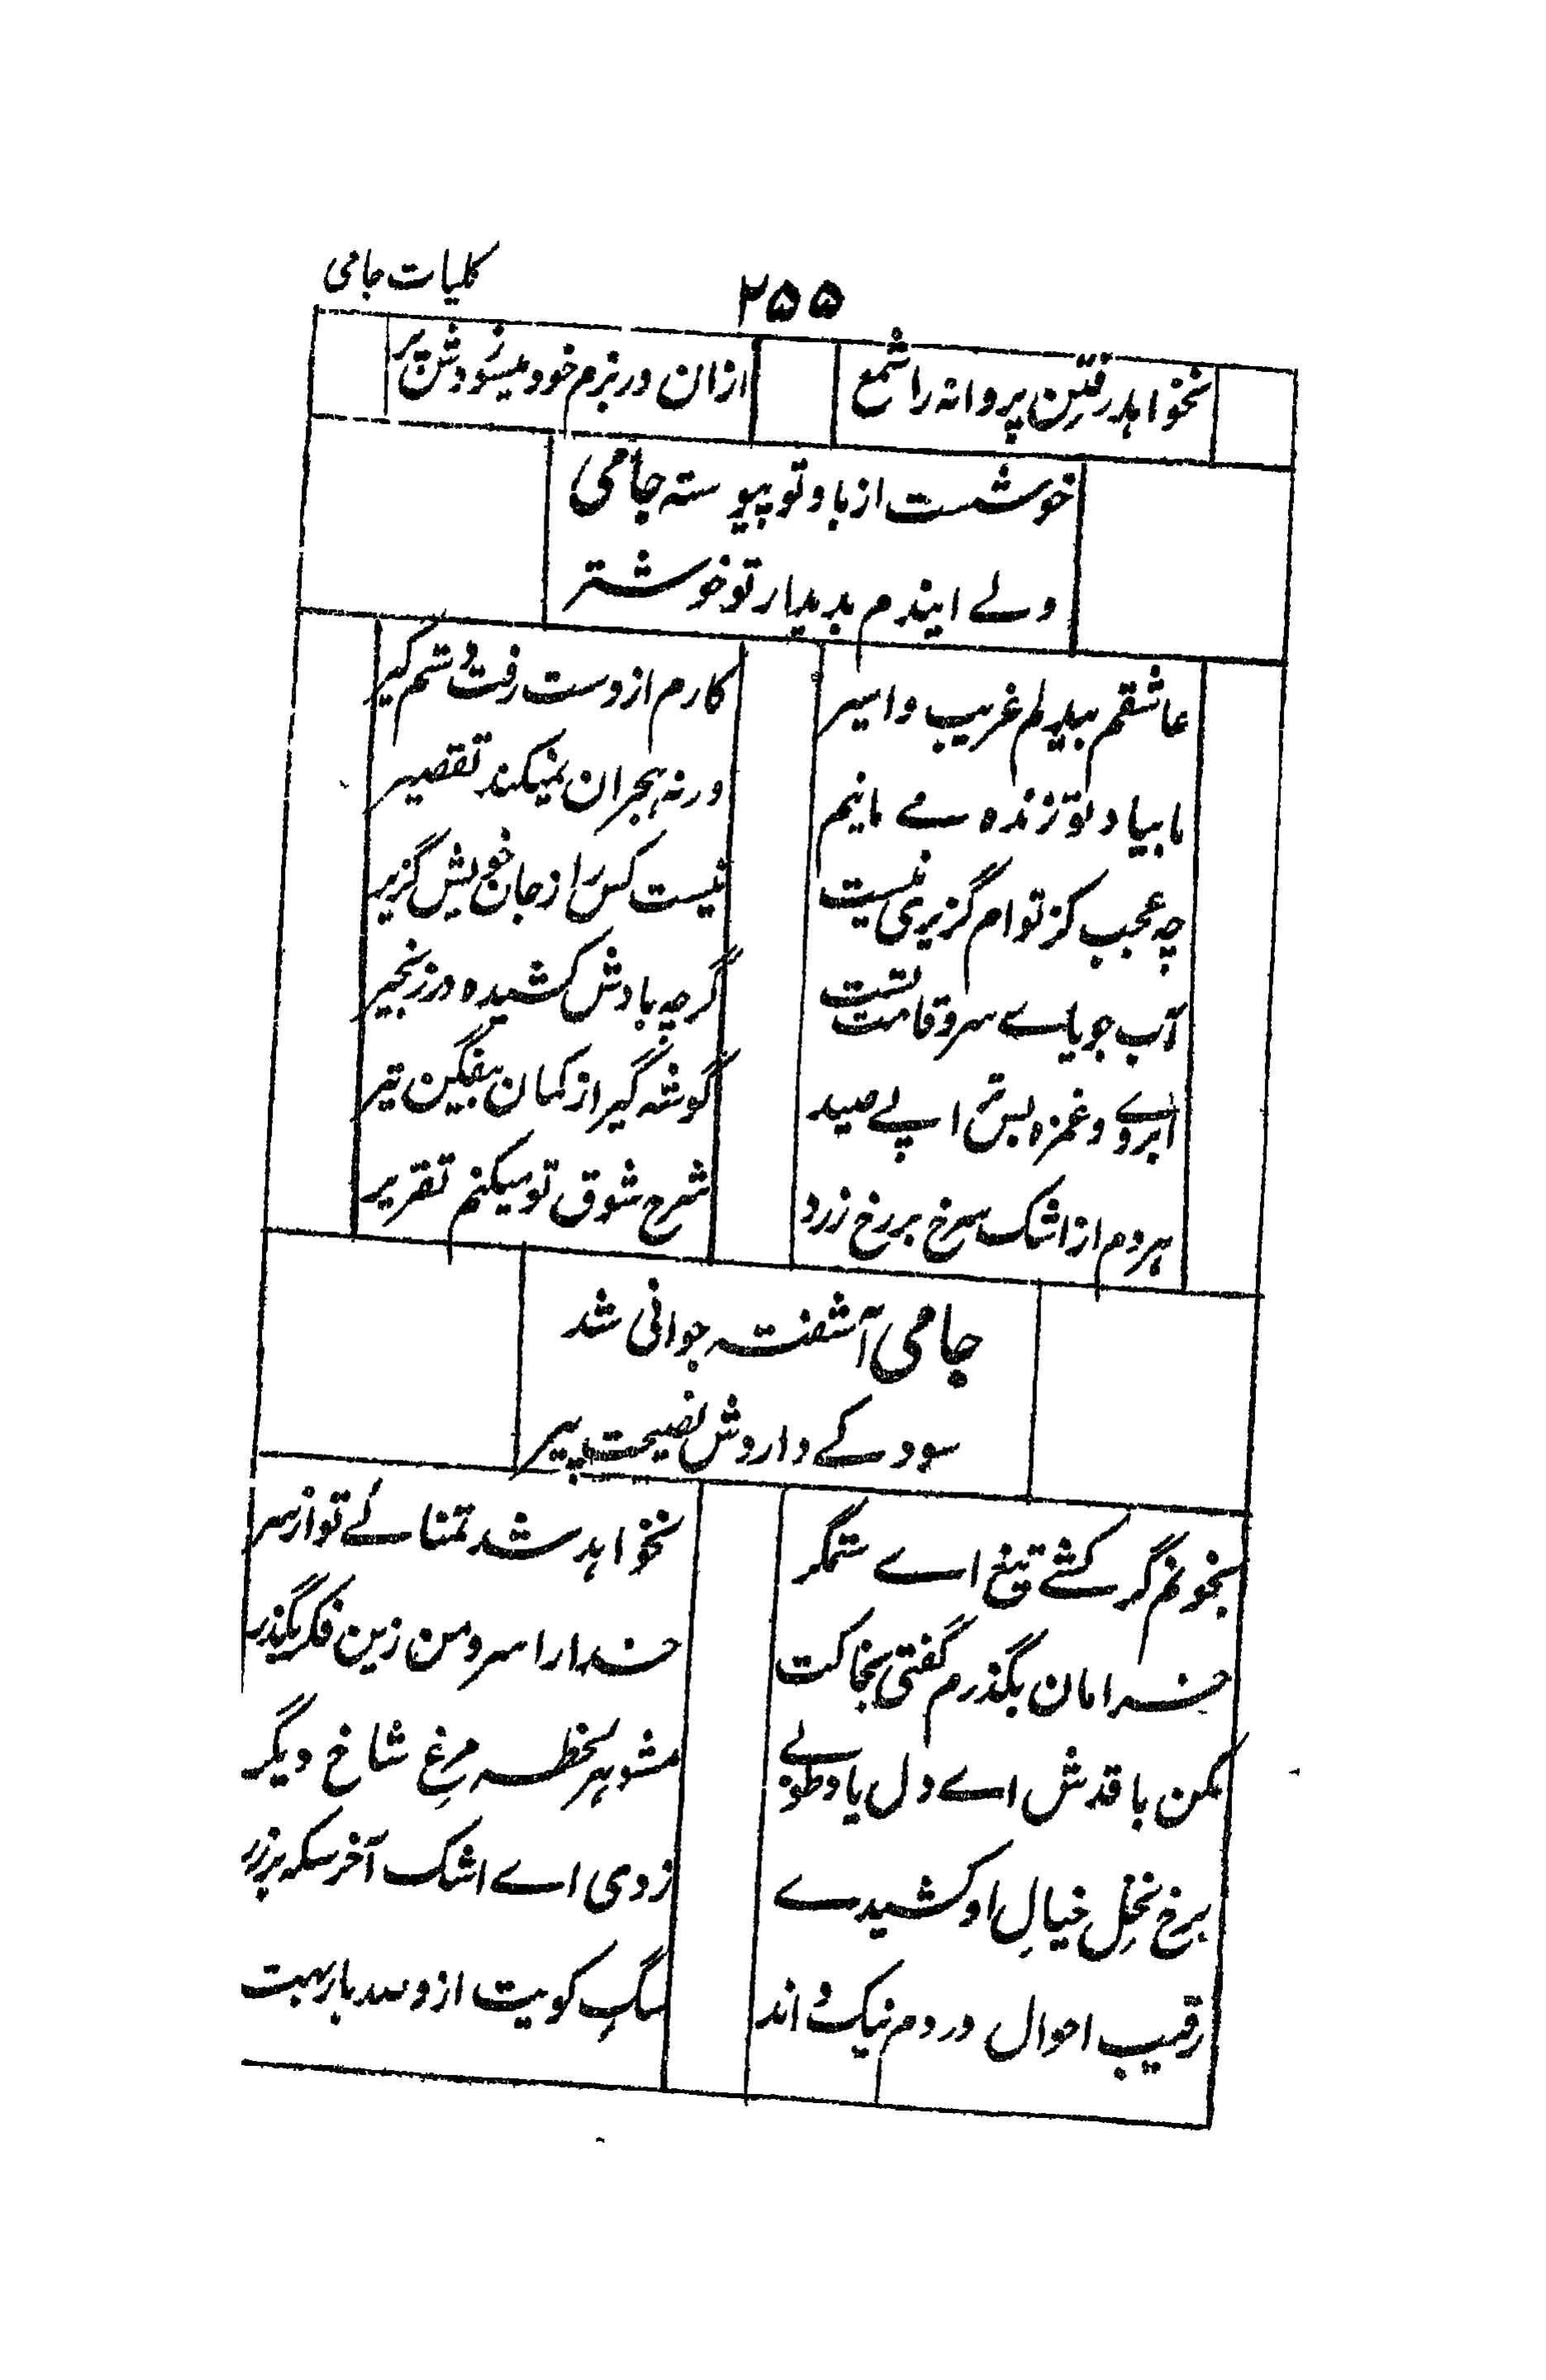 کلیات جامی
۲۵۵
نخواهد رفتن پروانه را شمع
ازان در بزم خود میسوزدش پر
خوشست از یاد تو پیوسته جامی
ولے ایندم بدیدار تو خوشتر
عاشقم بیدلم غریب و اسیر
کارم از دست رفت دستم گیر
ما بیاد تو زنده مے مانیم
ورنه هجران نمیکند تقصیر
چه عجب کز توام گزیری نیست
نیست کس را ز جان خویش گزیر
آب جویاے سرو قامت تست
گرچه بادش کشیده در زنجیر
ابروے و غمزه بس ترا پے صید
گوشه گیر از کمان بیفگن تیر
هردم از اشک سرخ بر رخ زرد
شرح شوق تو میکنم تقریر
جامی آشفته جوانی شد
سود کے داردش نصیحت پیر
بخونم گر کشے تیغ اے ستمگر
نخواهد شد تمنائے تو از سر
خرامان بگذرم گفتی بخاکت
خدا را سرو من زین فکر بگذر
مکن با قدش اے دل یاد طوبے
مشو هر لحظه مرغ شاخ دیگر
برخ نخلِ خیالِ او کشیدے
زدی اے اشک آخر سکه بر زر
رقیب احوال دردم نیک داند
سگِ کویت ازو صد بار بهت